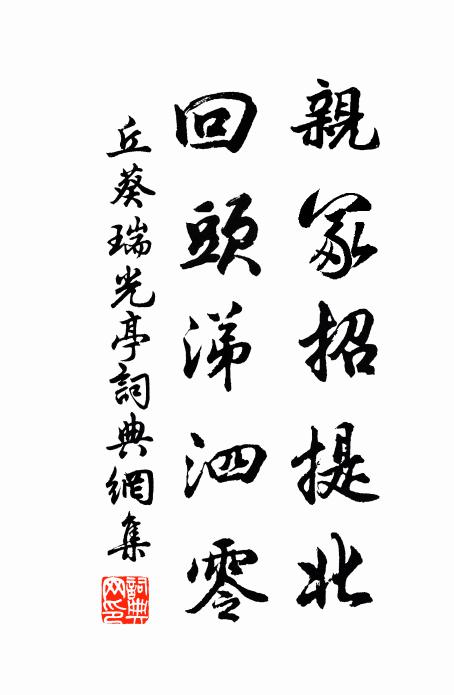 親冢招提北
回頭涕泗零
丘葵瑞光亭詞典網集
詞典網印